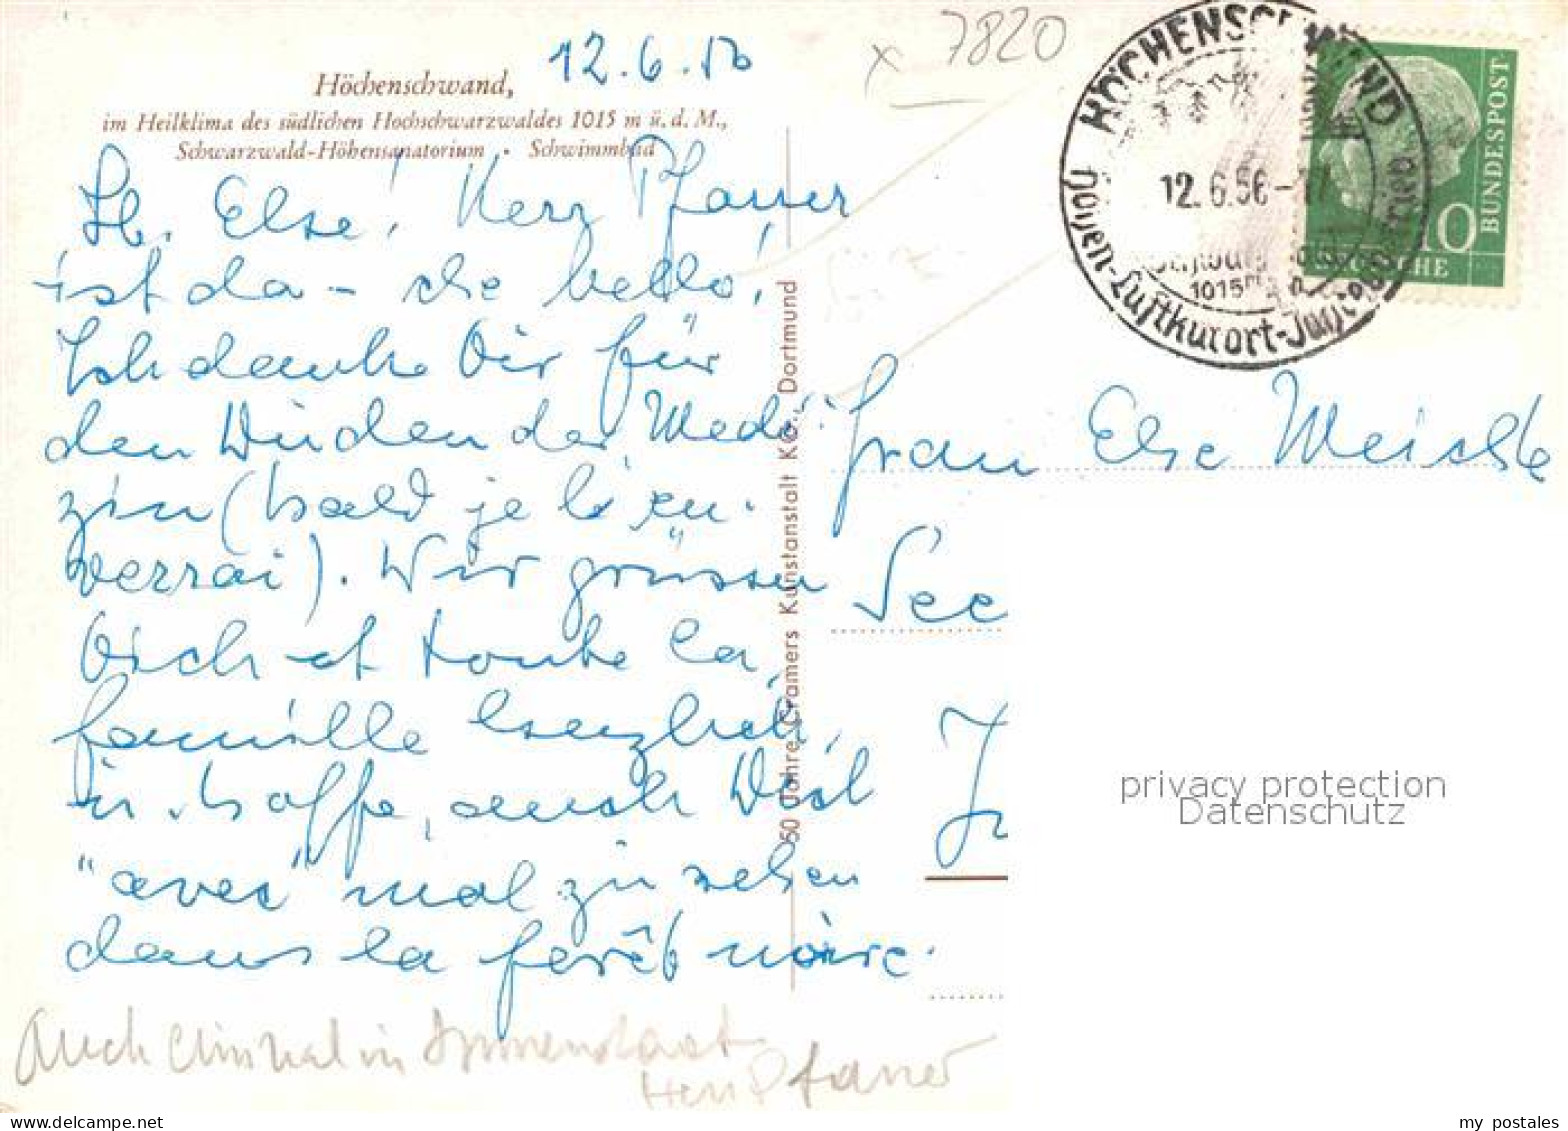 12.6.56
x 7820
Höchenschwand,
im Heilklima des südlichen Hochschwarzwaldes 1015 m ü. d. M.,
Schwarzwald-Höhensanatorium • Schwimmbad
Lb. Else! Herr Pfarrer
ist da – che bello!
Ich danke Dir für
den der Medi-
zin (bald je l'en-
verrai). Wir grüssen
Dich et toute la
famille herzlich,
in hoffe, auch Dich
"avec" mal zu sehen
dans la forêt noire.
Auch einmal in
Herr Pfarrer
50 Jahre Cramers Kunstanstalt KG., Dortmund
HÖCHENSCHWAND
12.6.56-17
1015m
Höhen-Luftkurort
10
DEUTSCHE
BUNDESPOST
Frau Else
See
privacy protection
Datenschutz
my_postales